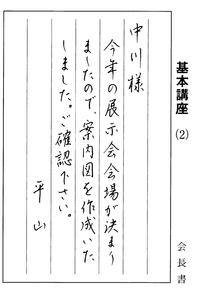 基本講座
(2)
会長書
中川様
今年の展示会会場が決まり
ましたので、案内図を作成いた
しました。ご確認下さい。
平山